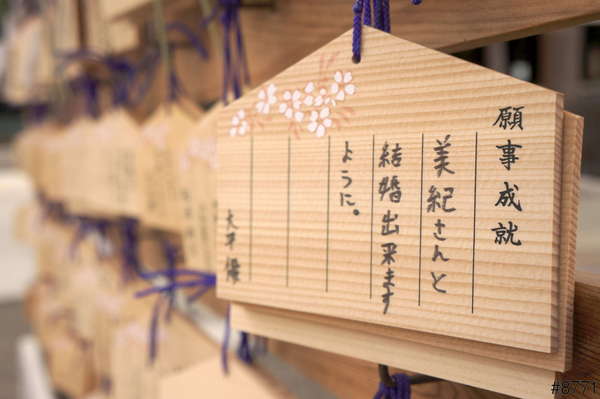 願事成就
美紀さんと
結婚出来ます
ように。
#8771